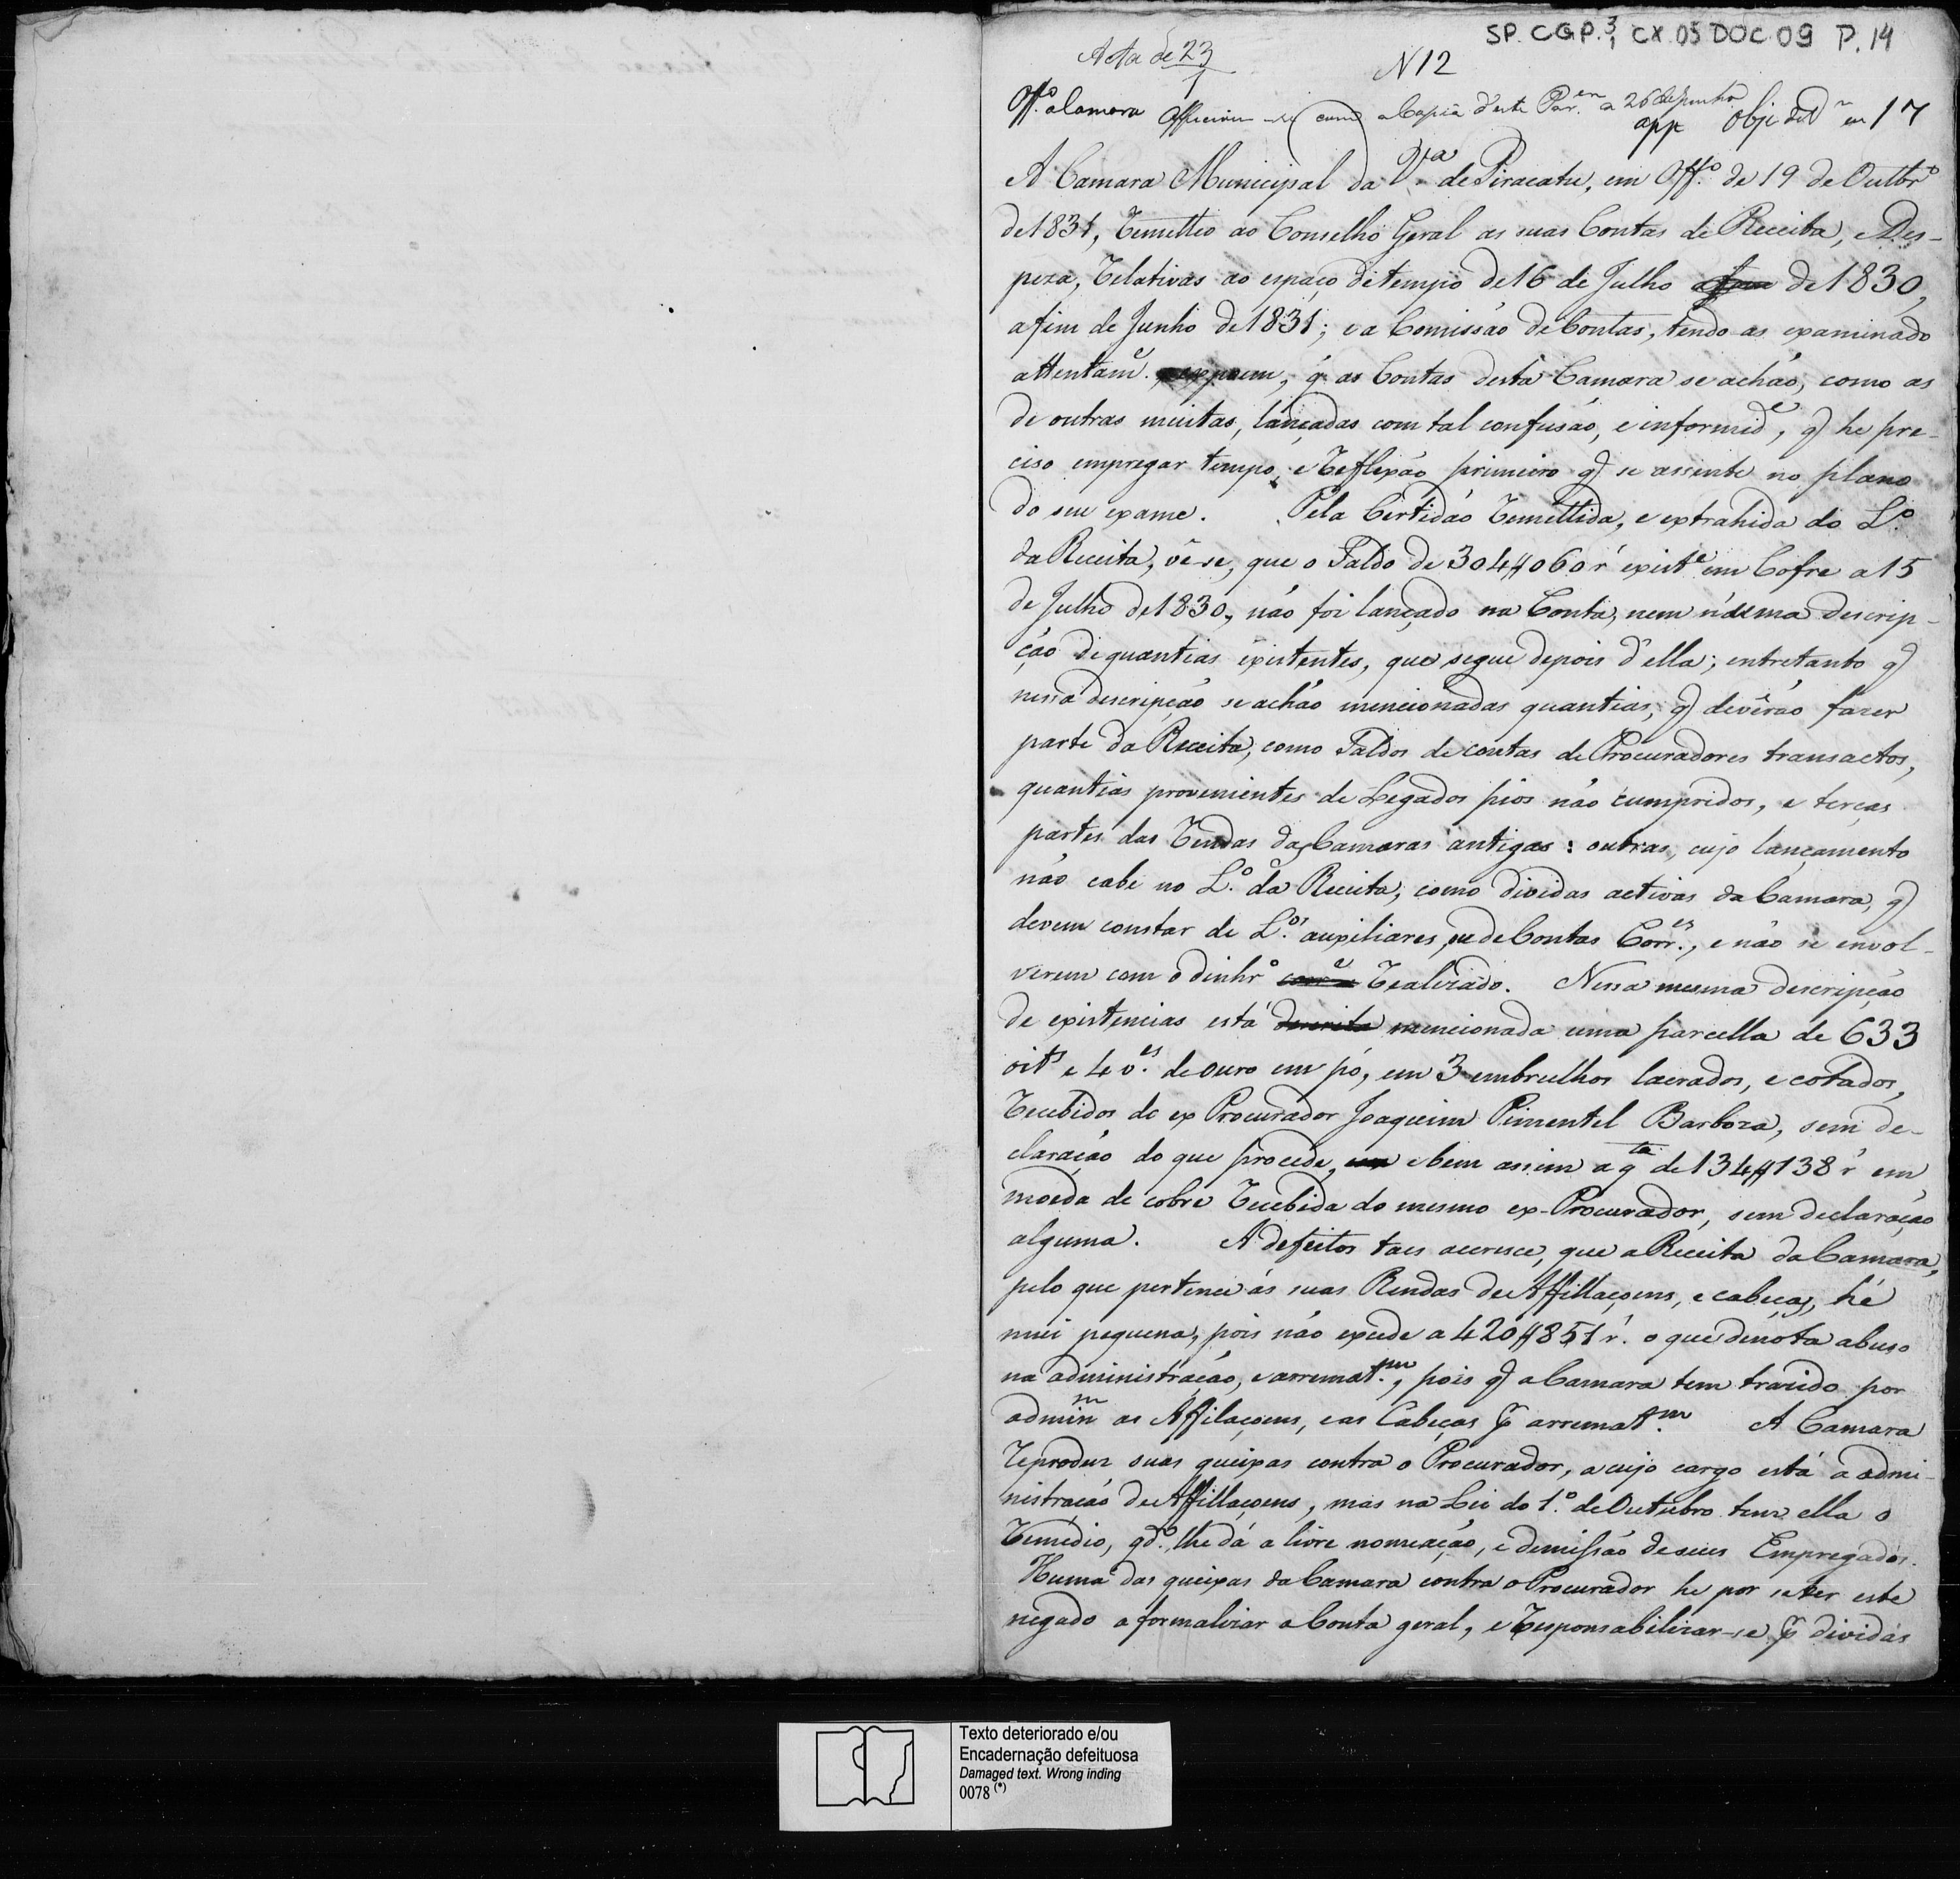 SP. CGP. 3, CX. 05 DOC. 09 P. 14
Acta de 23
N 12
Off.º a Camara Officiou-se com a Copia d'este Par.em a 26 de Junho
app Obj de D em 17
A Camara Municipal da V.ª de Piracatu, em Off.º de 19 de Outbrº
de 1831, remetteo ao Conselho Geral as suas Contas de Receita, e Des-
peza, relativas ao espaço de tempo de 16 de Julho de 1830,
a fim de Junho de 1831; e a Comissão de Contas, tendo-as examinado
attentam.e expoem, q as Contas desta Camara se achão, como as
de outras muitas, lançadas com tal confusão, e informid.e, q he pre-
ciso empregar tempo, e reflexão primeiro q se assente no plano
do seu exame. Pela Certidão remettida, e extrahida do L.º
da Receita, vê-se, que o Saldo de 304$060 r existe em Cofre a 15
de Julho de 1830, não foi lançado na Conta, nem n'uma descrip-
ção de quantias existentes, que segue depois d'ella; entretanto q
nessa descripção se achão mencionadas quantias, q devêrão fazer
parte da Receita, como Saldos de contas de Procuradores transactos,
quantias provenientes de Legados pios não cumpridos, e terças
partes das rendas das Camaras antigas: outras, cujo lançamento
não cabe no L.º da Receita, como dividas activas da Camara, q
devem constar de L.os auxiliares, ou de Contas Corr.es, e não se envol-
verem com o dinhrº realizado. Nessa mesma descripção
de existencias está mencionada uma parcella de 633
oit.s e 4 v.es de ouro em pó, em 3 embrulhos lacrados, e cotados,
recebidos do ex Procurador Joaquim Pimentel Barboza, sem de-
claração do que procede, e bem assim a q.ta de 134$138 r em
moeda de cobre recebida do mesmo ex-Procurador, sem declaração
alguma. A defeitos taes accresce, que a Receita da Camara,
pelo que pertence ás suas Rendas de Affillaçoens, e cabeças, hé
mui pequena, pois não excede a 420$851 r. o que denota abuso
na administração, e arremat.m, pois q a Camara tem trazido por
admin.m as Affilaçoens, e as Cabeças p arremat.m A Camara
reproduz suas queixas contra o Procurador, a cujo cargo está a admi-
nistração de Affillaçoens, mas na Lei do 1.º de Outubro tem ella o
remedio, qd.º lhe dá a livre nomeação, e demissão de seus Empregados.
Huma das queixas da Camara contra o Procurador he por se ter este
negado a formalizar a Conta geral, e responsabilizar-se p dividas
Texto deteriorado e/ou
Encadernação defeituosa
Damaged text. Wrong inding
0078 (*)